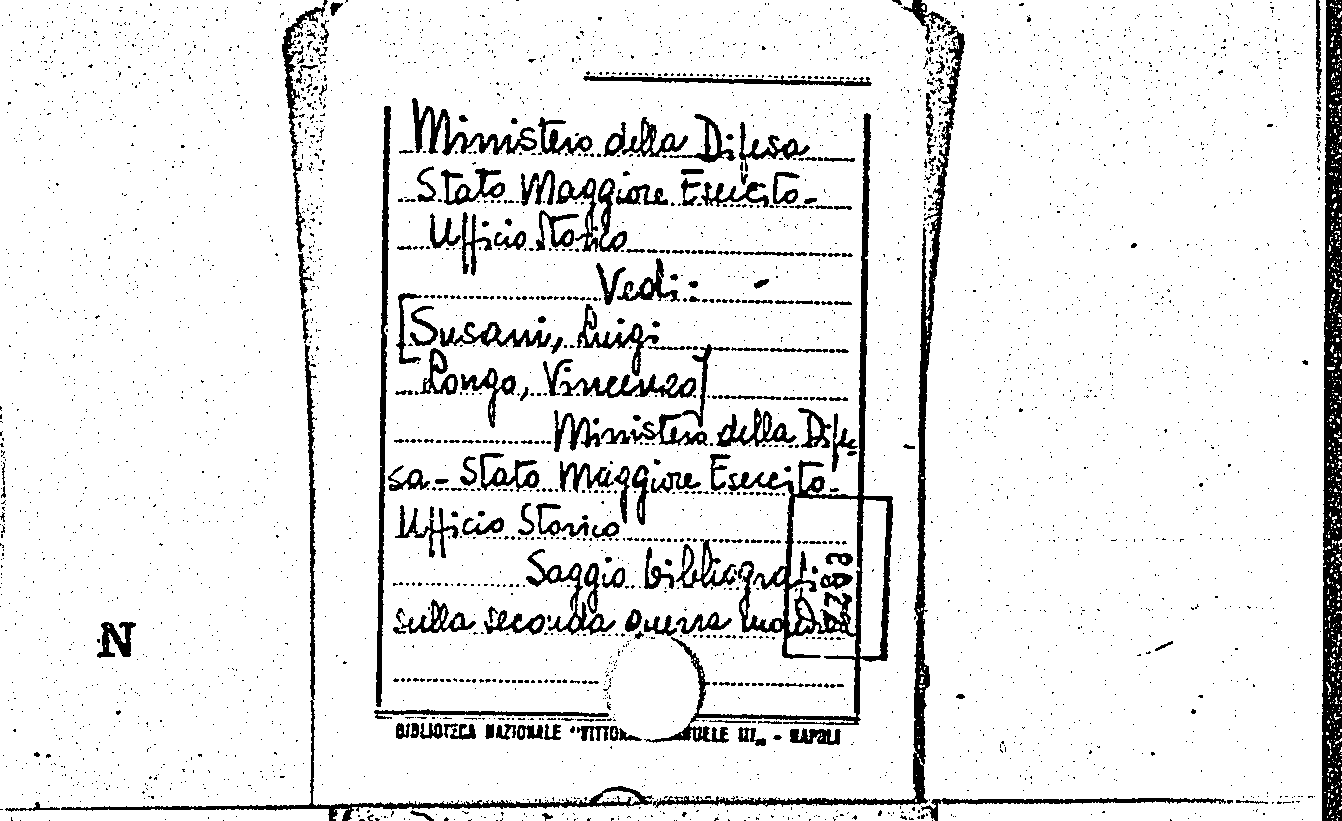 Ministero della Difesa
Stato Maggiore Esercito-
Ufficio Storico
Vedi: -
[Susani, Luigi
Longo, Vincenzo]
Ministero della Dife-
sa - Stato Maggiore Esercito-
Ufficio Storico
Saggio
sulla seconda guerra
N
BIBLIOTECA NAZIONALE "VITTORIO EMANUELE III„ - NAPOLI